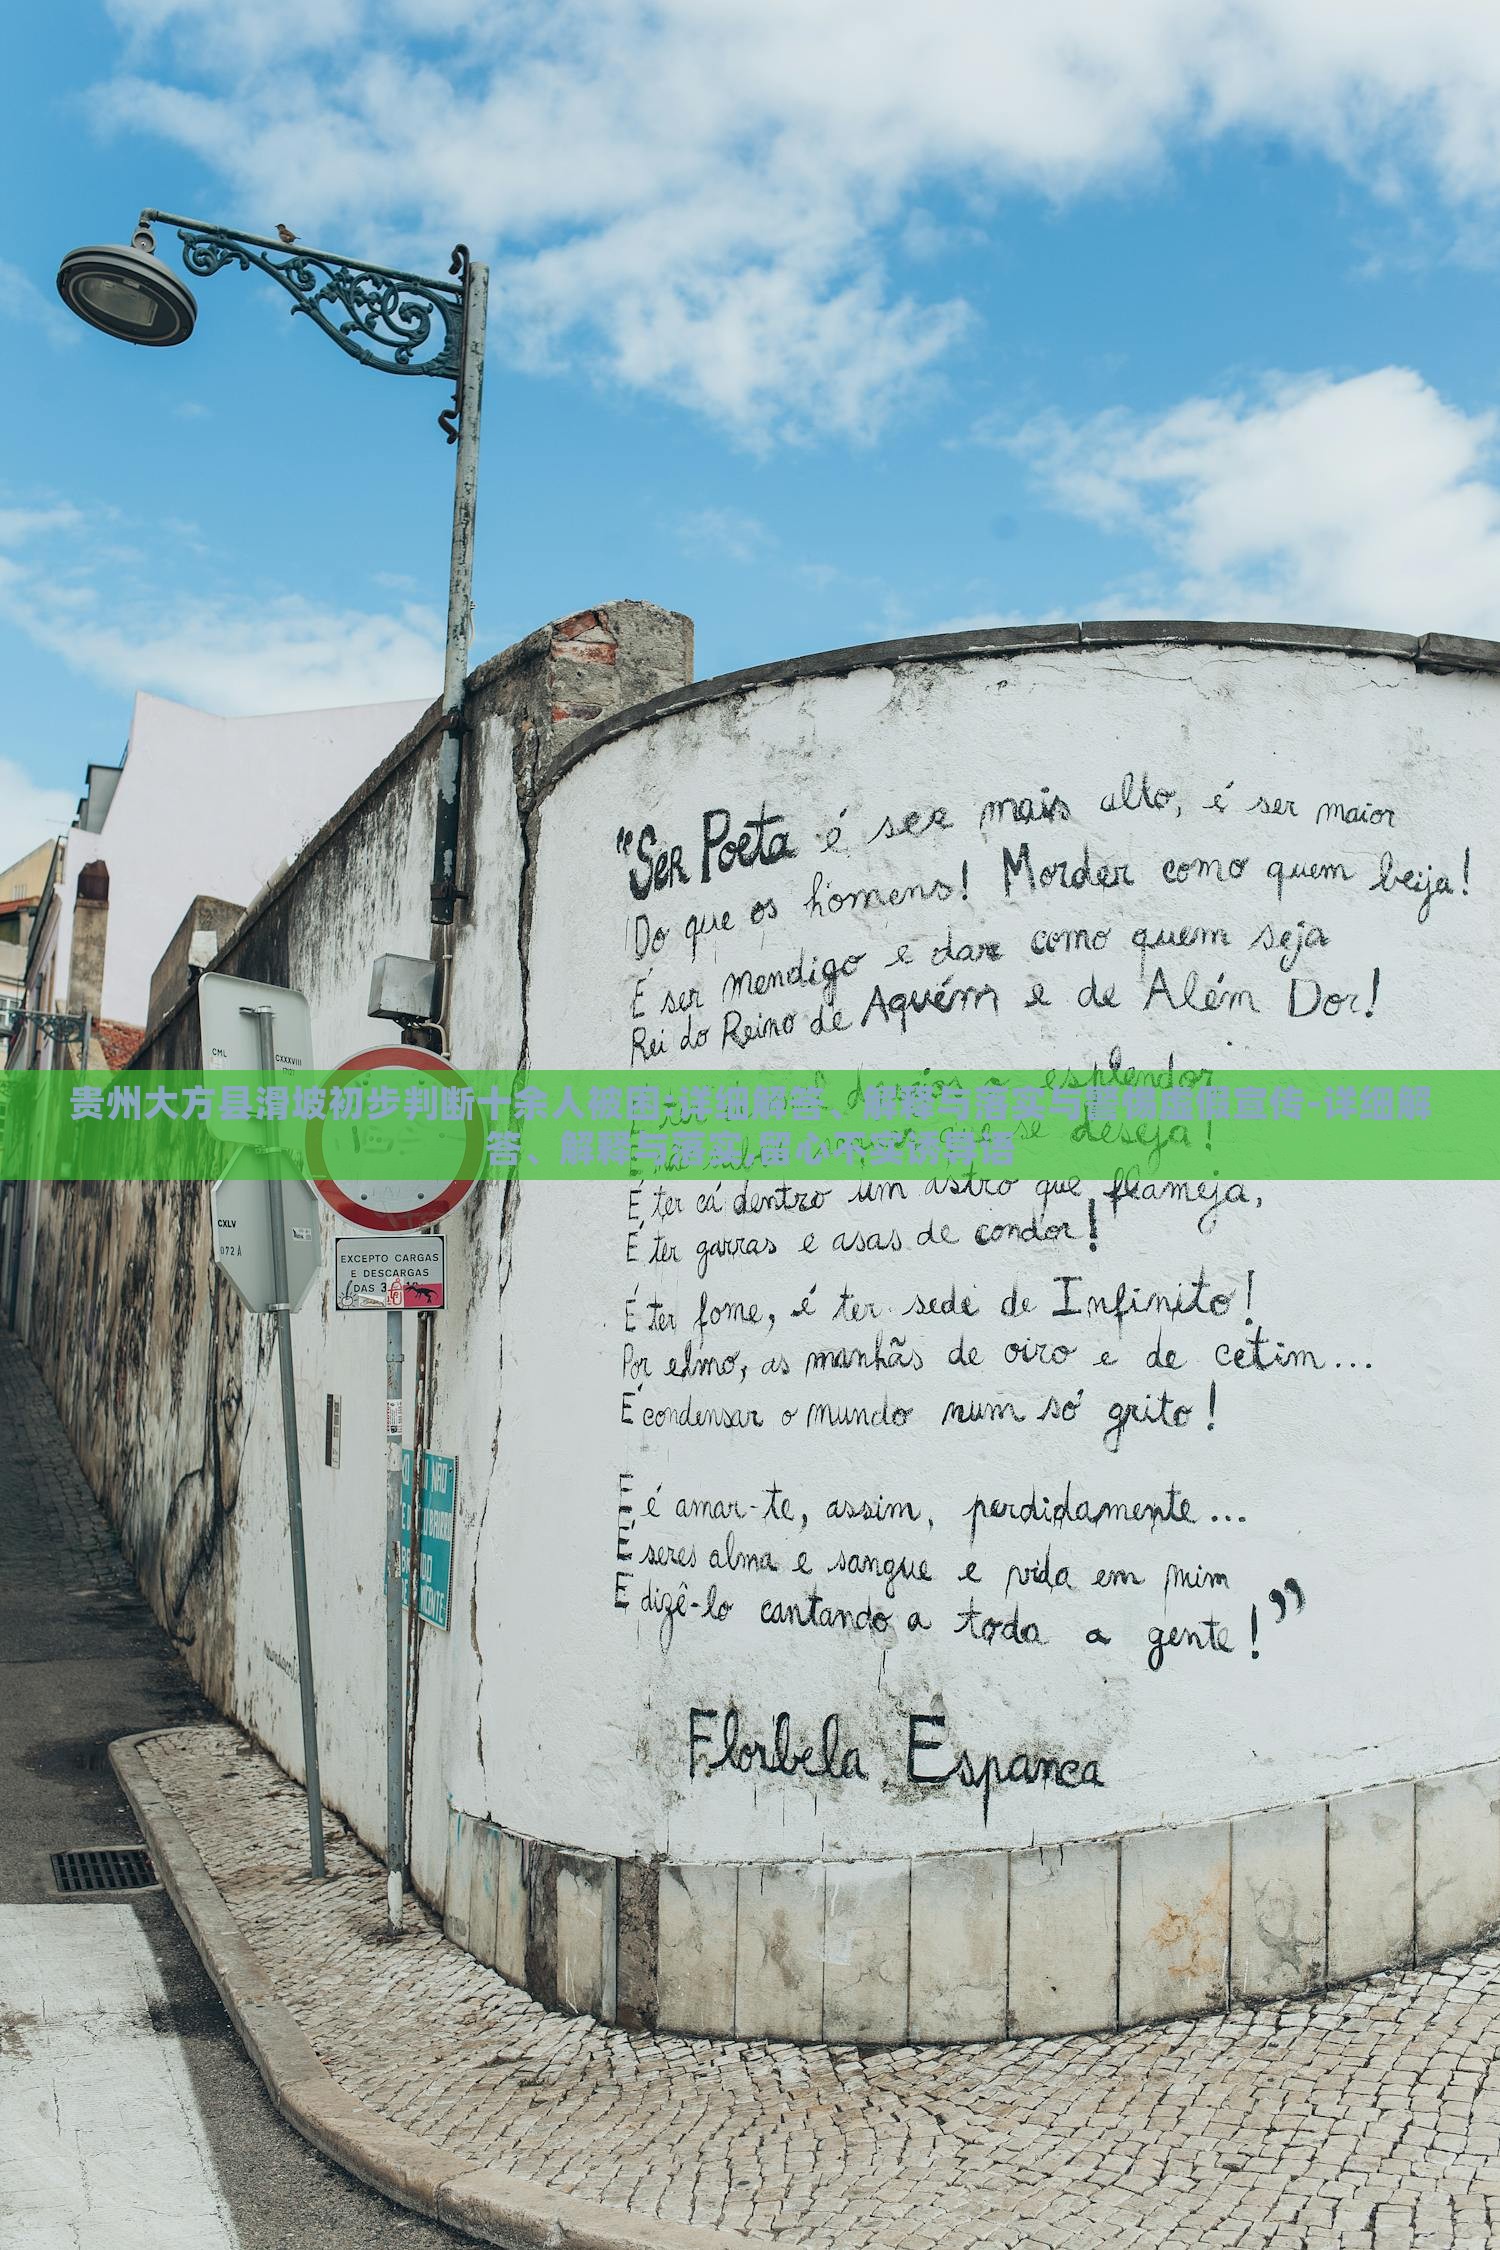 "Ser Poeta é ser mais alto, é ser maior
Do que os homens! Morder como quem beija!
É ser mendigo e dar como quem seja
Rei do Reino de Aquém e de Além Dor!
esplendor
se deseja!
É ter cá dentro um astro que flameja,
É ter garras e asas de condor!
É ter fome, é ter sede de Infinito!
Por elmo, as manhãs de oiro e de cetim...
É condensar o mundo num só grito!
E é amar-te, assim, perdidamente...
É seres alma e sangue e vida em mim
E dizê-lo cantando a toda a gente!"
Florbela Espanca
贵州大方县滑坡初步判断十余人被困,详细解答、解释与落实与警惕虚假宣传-详细解
答、解释与落实,留心不实诱导语
CML
CXXXVIII
CXLV
072A
EXCEPTO CARGAS
E DESCARGAS
DAS
NÃO